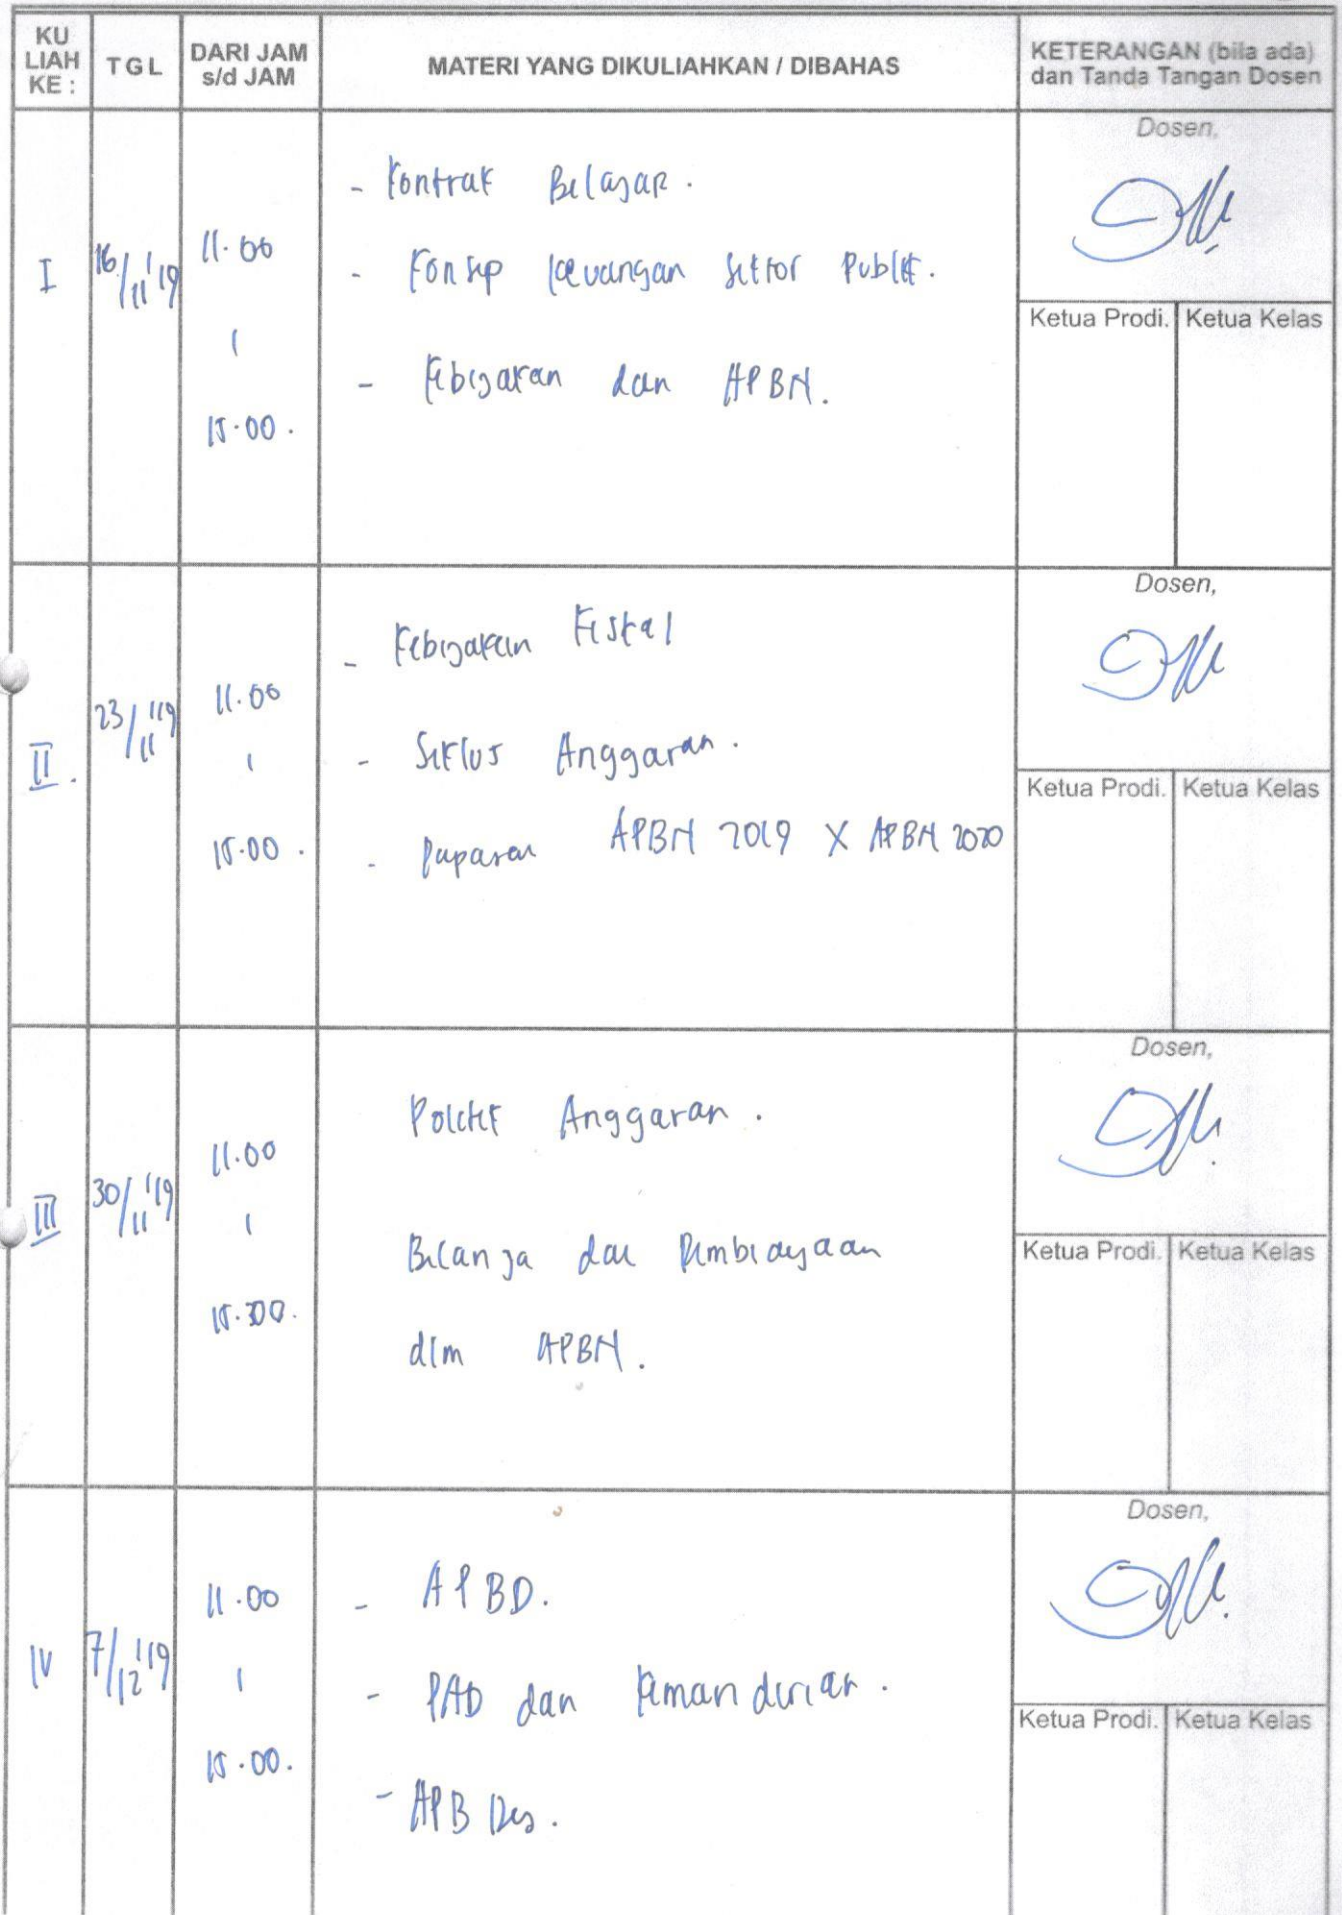 KU
LIAH
KE :
TGL
DARI JAM
s/d JAM
MATERI YANG DIKULIAHKAN / DIBAHAS
KETERANGAN (bila ada)
dan Tanda Tangan Dosen
I
16/11 '19
11.00
15.00.
- Kontrak Belajar.
- Konsep keuangan sektor Publik.
- Kebijakan dan APBN.
Dosen,
Ketua Prodi. Ketua Kelas
II.
23/11 '19
11.00
15.00.
- Kebijakan Fiskal
- Siklus Anggaran.
- Paparan APBN 2019 X APBN 2020
Dosen,
Ketua Prodi. Ketua Kelas
III
30/11 '19
11.00
Politik Anggaran.
Belanja dan Pembiayaan
dlm APBN.
Dosen,
Ketua Prodi. Ketua Kelas
IV
7/12 '19
11.00
15.00.
- APBD.
- PAD dan Kemandirian.
- APB Des.
Dosen,
Ketua Prodi. Ketua Kelas